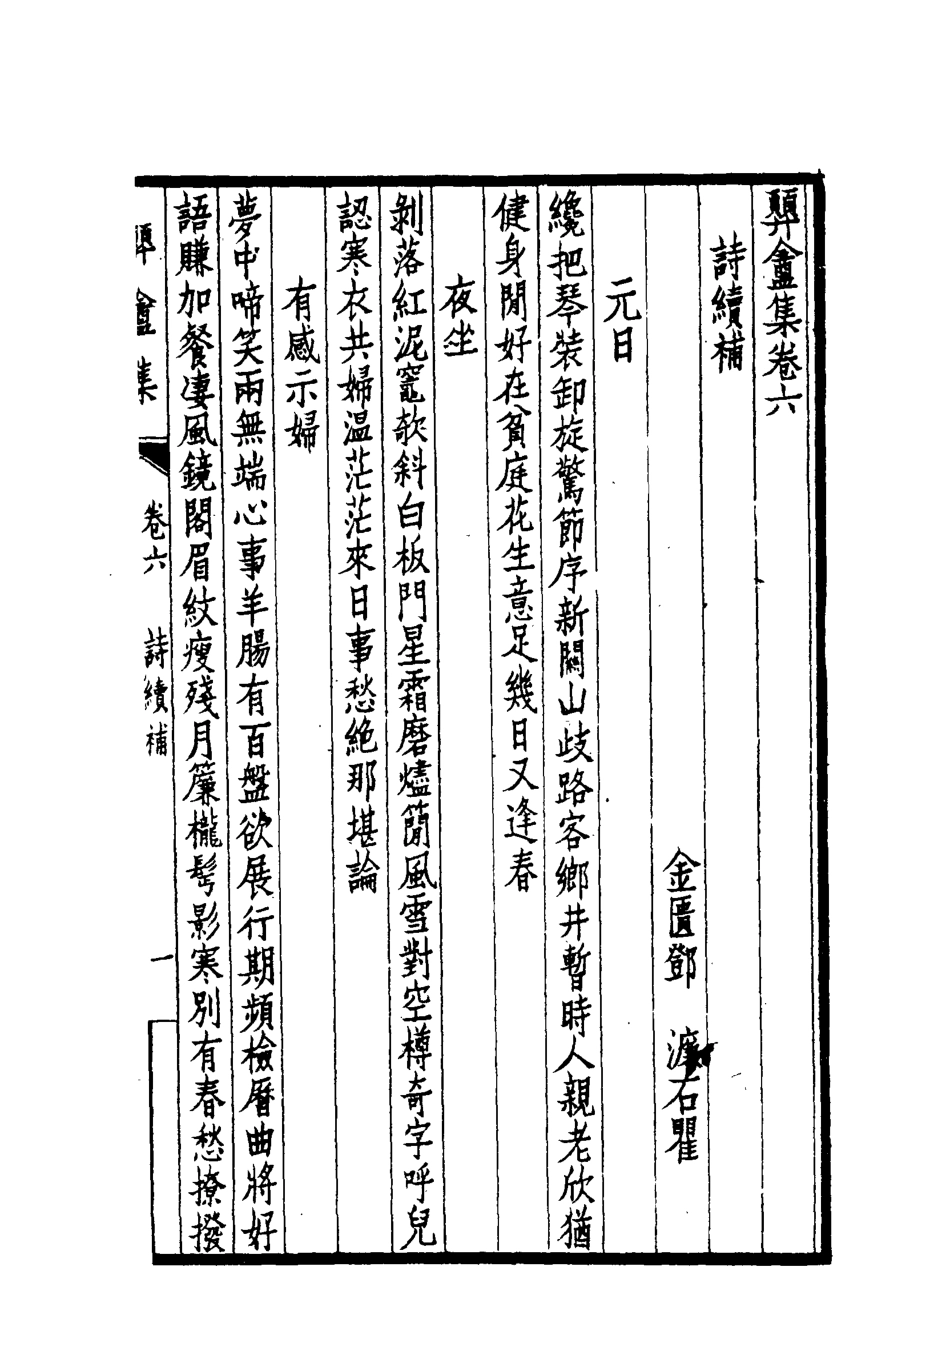 㢸盦集卷六
詩續補
金匱鄧 濂石瞿
元日
纔把琴裝卸旋驚節序新關山歧路客鄉井暫時人親老欣猶
健身閒好在貧庭花生意足幾日又逢春
夜坐
剝落紅泥竈欹斜白板門星霜磨燼簡風雪對空樽奇字呼兒
認寒衣共婦温茫茫來日事愁絶那堪論
有感示婦
夢中啼笑兩無端心事羊腸有百盤欲展行期頻檢曆曲將好
語賺加餐凄風鏡閣眉紋瘦殘月簾櫳髩影寒別有春愁撩撥
盦集 卷六 詩續補 一